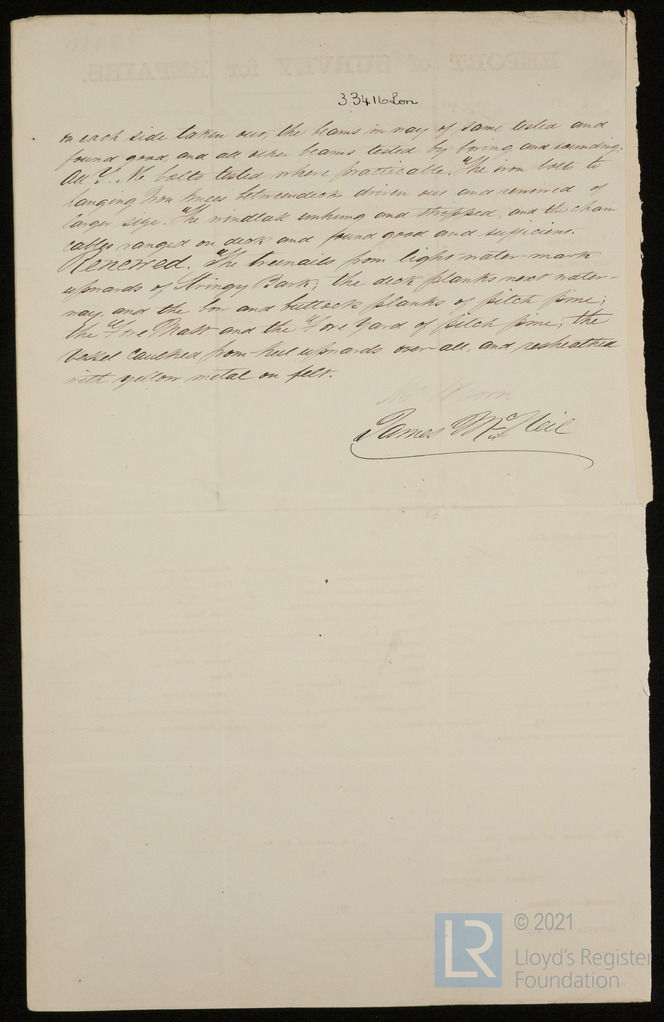 33416 Lon
on each side taken out, the beams in way of same tested and
found good, and all other beams tested by boring and sounding.
All Y. M. bolts tested where practicable. The iron bolts to
hanging Iron knees betweendecks driven out and renewed of
larger size. The windlass unhung and stripped, and the chain
cables ranged on deck and found good and sufficient.
Renewed. The treenails from light water-mark
upwards of Stringy Bark; the deck planks next water-
way, and the bow and buttock planks of pitch pine;
the Fore Mast and the Fore Yard of pitch pine; the
Vessel caulked from keel upwards over all, and resheathed
with yellow metal on felt.
James McNeil
© 2021
LR
Lloyd's Register
Foundation